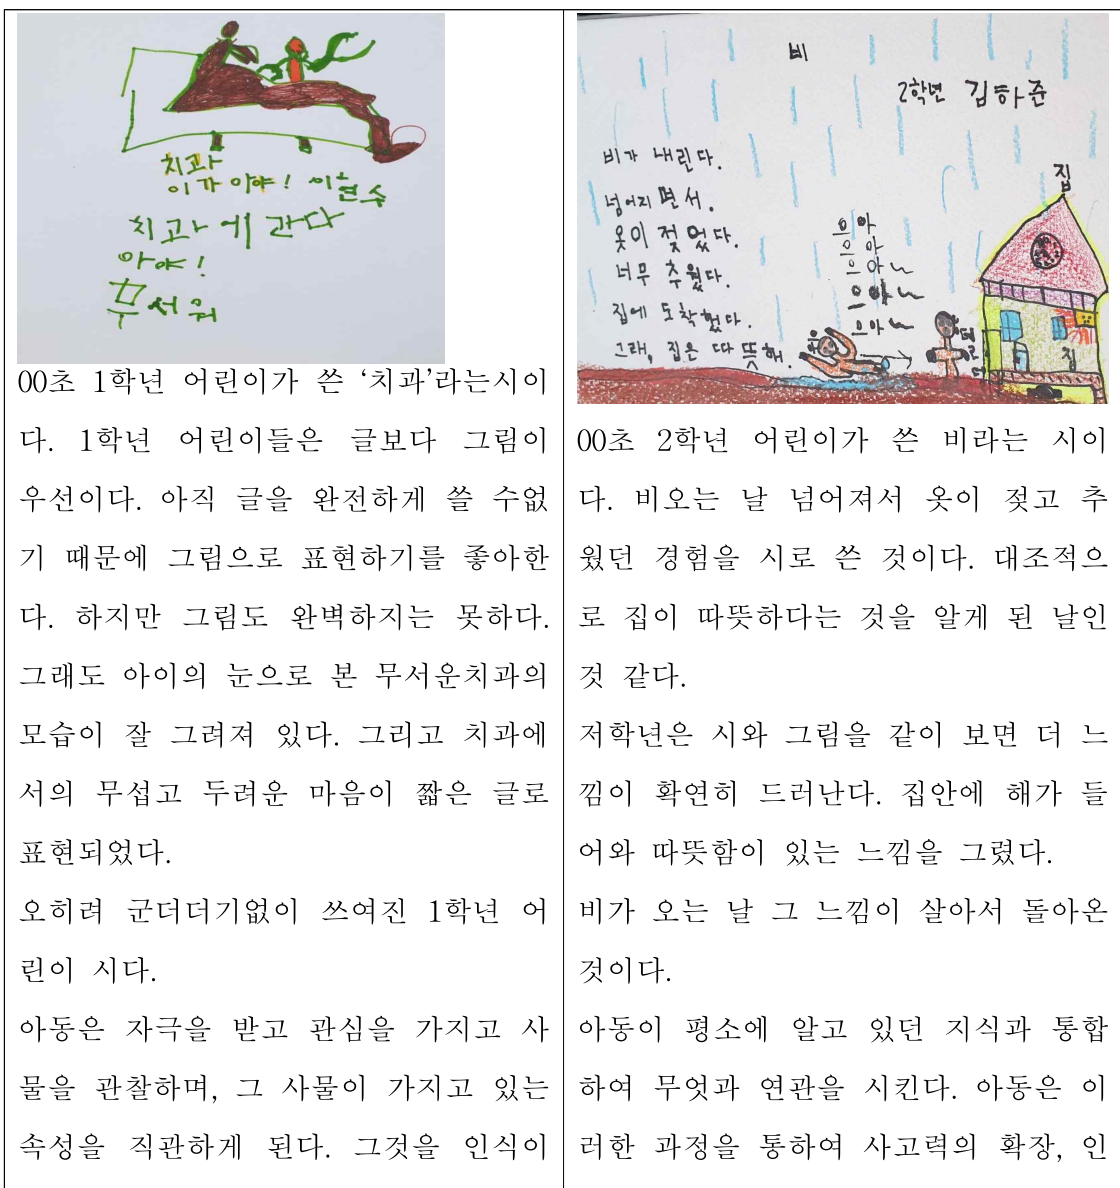 치과
이가 아야! 이현수
치과에 간다
아야!
무서워
00초 1학년 어린이가 쓴 ‘치과’라는시이
다. 1학년 어린이들은 글보다 그림이
우선이다. 아직 글을 완전하게 쓸 수없
기 때문에 그림으로 표현하기를 좋아한
다. 하지만 그림도 완벽하지는 못하다.
그래도 아이의 눈으로 본 무서운치과의
모습이 잘 그려져 있다. 그리고 치과에
서의 무섭고 두려운 마음이 짧은 글로
표현되었다.
오히려 군더더기없이 쓰여진 1학년 어
린이 시다.
아동은 자극을 받고 관심을 가지고 사
물을 관찰하며, 그 사물이 가지고 있는
속성을 직관하게 된다. 그것을 인식이
비
2학년 김하준
비가 내린다.
넘어지면서.
옷이 젖었다.
너무 추웠다.
집에 도착했다.
그래, 집은 따뜻해.
으아
으아
으아~
으아~
으아~
집
덜덜
집
00초 2학년 어린이가 쓴 비라는 시이
다. 비오는 날 넘어져서 옷이 젖고 추
웠던 경험을 시로 쓴 것이다. 대조적으
로 집이 따뜻하다는 것을 알게 된 날인
것 같다.
저학년은 시와 그림을 같이 보면 더 느
낌이 확연히 드러난다. 집안에 해가 들
어와 따뜻함이 있는 느낌을 그렸다.
비가 오는 날 그 느낌이 살아서 돌아온
것이다.
아동이 평소에 알고 있던 지식과 통합
하여 무엇과 연관을 시킨다. 아동은 이
러한 과정을 통하여 사고력의 확장, 인